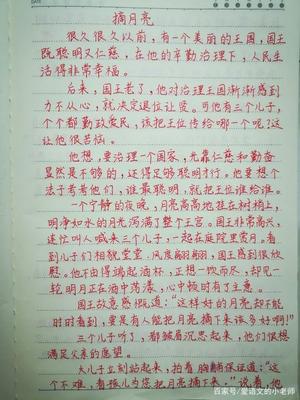 摘月亮
很久很久以前,有一个美丽的王国,国王
既聪明又仁慈,在他的辛勤治理下,人民生
活得非常幸福。
后来,国王老了,他对治理王国渐渐感到
力不从心,就决定退位让贤。可他有三个儿子,
个个都勤政爱民,该把王位传给哪一个呢?这
让他很苦恼。
他想,要治理一个国家,光靠仁慈和勤奋
显然是不够的,还得足够聪明才行。他要想个
法子考考他们,谁最聪明,就把王位谁给谁。
一个宁静的夜晚,月亮高高地挂在树梢上,
明净如水的月光泻满了整个王宫。国王非常高兴,
连忙叫人喊来三个儿子,一起在庭院里赏月。看
到儿子们相貌堂堂、风度翩翩,国王感到很欣
慰。他不由得端起酒杯,正想一饮而尽,却见一
轮明月正在酒中荡漾,心中顿时有了主意。
国王故意感慨道:"这样好的月亮却不能
时时看到,要是有人能把月亮摘下来该多好啊!"
三个儿子听了,都皱眉沉思起来,他们很想
满足父亲的愿望。
大儿子立刻站起来,拍着胸脯保证道:"这
个不难,看孩儿为您把月亮摘下来。"说着,他
百家号/爱语文的小老师